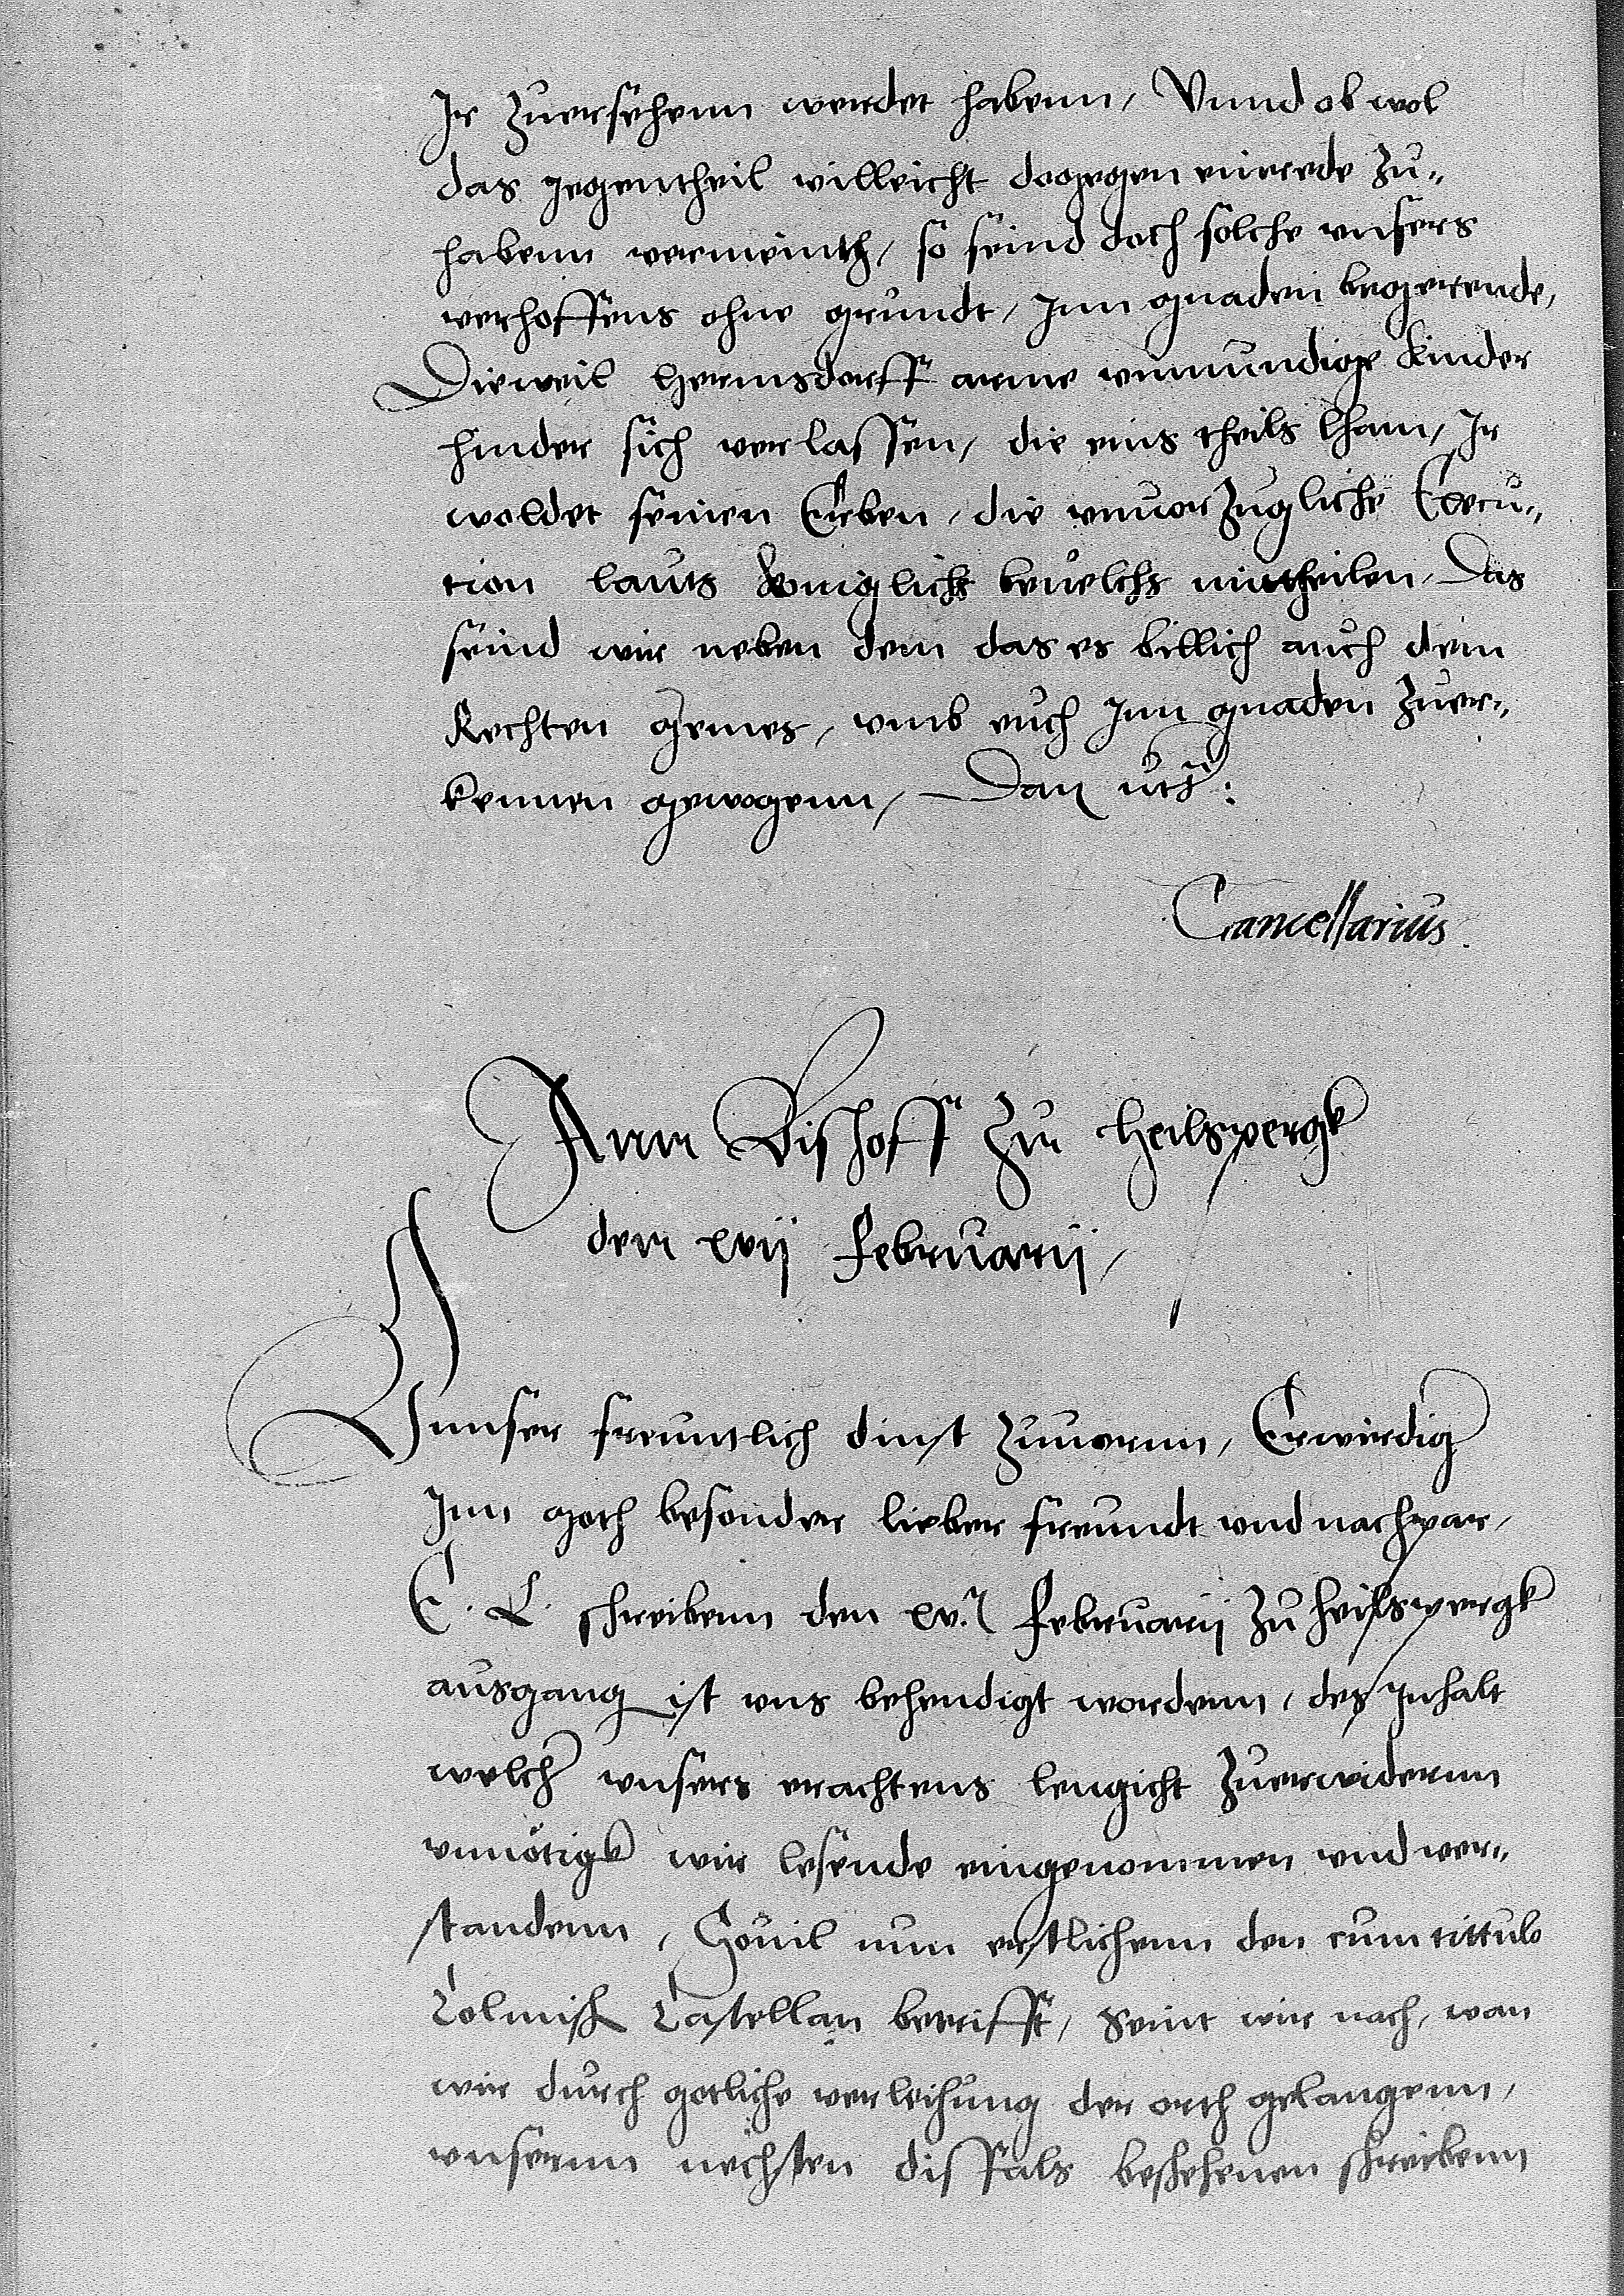 Ir zuersehenn werdet habenn, Vnnd ob wol
das gegentheil villeicht dogegen einrede zu„
habenn vermeinth, so seind doch solche vnsers
verhoffens ohne grundt, Inn gnaden begerende,
Dieweil Hermsdorff arme vnmundige Kinder
hinder sich verlassen, die eins theils lham, Ir
woldet seinen Erben, die vnuorzugliche Execu„
tion lauts Koniglichs beuelchs mittheilen, Das
seind wir neben dem das es billich auch dem
Rechten gemes, vmb euch Inn gnaden zuer„
kennen gewogenn, Dan etc:
Cancellarius.
Ann Bischoff zu Heilspergk
den xvij Februarij,
Vnnser freuntlich dinst zuuornn, Erwirdig
Inn goth besonder lieber freundt vnd nachpar,
E. L. schreibenn den xv. Februarij zu Heilspergk
ausgang ist vns behendigt wordenn, des Inhalt
welchs vnsers erachtens lengicht zuerwidernn
vnnötigk wir lesende eingenommen vnd ver„
standenn, Souil nun erstlichenn den cum tittulo
Colmisch Castellan betrifft, Seint wir nach, wan
wir durch gotliche verleihung der orth gelangenn,
vnsernn nechsten disfals beschehenen schreibenn